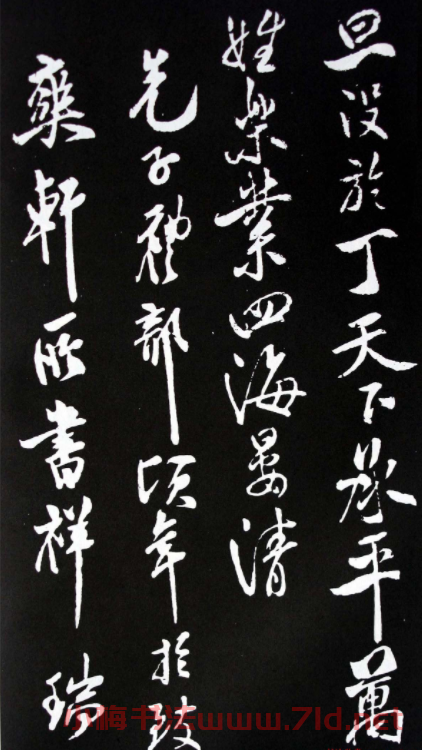 旦没於丁天下承平萬
姓樂業四海晏清
先子礼部頃年於致
爽軒所書祥瑞
小梅书法www.7ld.net